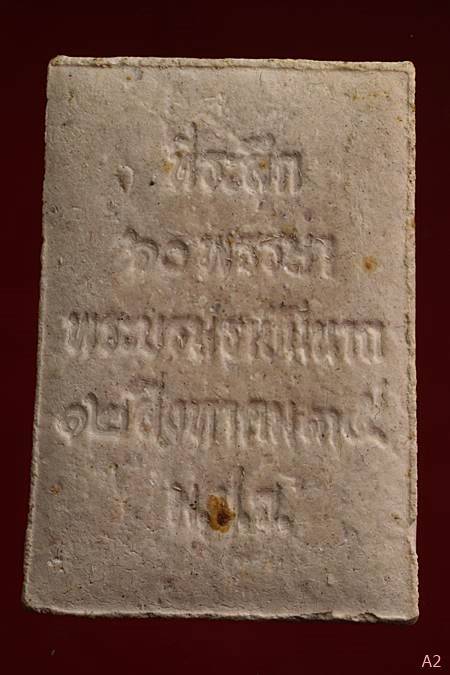 ที่ระลึก
๖๐ พรรษา
พระบรมราชินีนาถ
๑๒ สิงหาคม ๓๕
A2